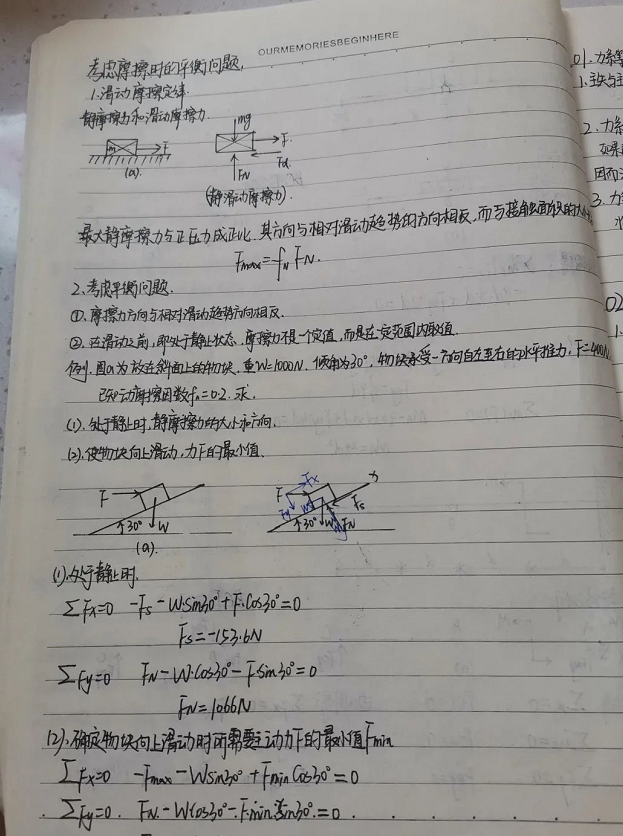 OURMEMORIESBEGINHERE
考虑摩擦时的平衡问题,
1.滑动摩擦定律
静摩擦力和滑动摩擦力
mg
m F F
Fd
(a). FN
(静滑动摩擦力).
最大静摩擦力与正压力成正比.其方向与相对滑动趋势的方向相反,而与接触面面积的大小
Fmax=fN FN.
2.考虑平衡问题.
①.摩擦力方向与相对滑动趋势方向相反.
②.在滑动之前,即处于静止状态,摩擦力不是一个定值,而是在一定范围内取值.
例.图a为放在斜面上的物块,重W=1000N.倾角为30°,物块承受一方向自左至右的水平推力,F=400N
已知动摩擦因数fn=0.2.求.
(1).处于静止时,静摩擦力的大小和方向.
(2).使物块向上滑动,力F的最小值.
F 30° W
(a).
F Fx Fy x Fs 30° W FN
(1).处于静止时.
∑Fx=0 -Fs-W·sin30°+F·Cos30°=0
Fs=-153.6N
∑Fy=0 FN-W·Cos30°-F·Sin30°=0
FN=1066N
(2).确定物块向上滑动时所需要主动力F的最小值Fmin
∑Fx=0 -Fmax-Wsin30°+FminCos30°=0
∑Fy=0. FN.-WCos30°-F.min.Sin30°=0.
01.力系等
1.主矢与主
2.力系
如果
因而
3.力
02
1.